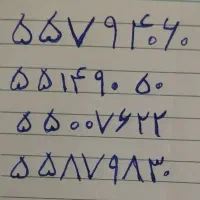 ۵۵۷۹۴۰۶۰
۵۵۱۴۹۰۵۰
۵۵۰۰۷۶۲۲
۵۵۸۷۹۸۳۰